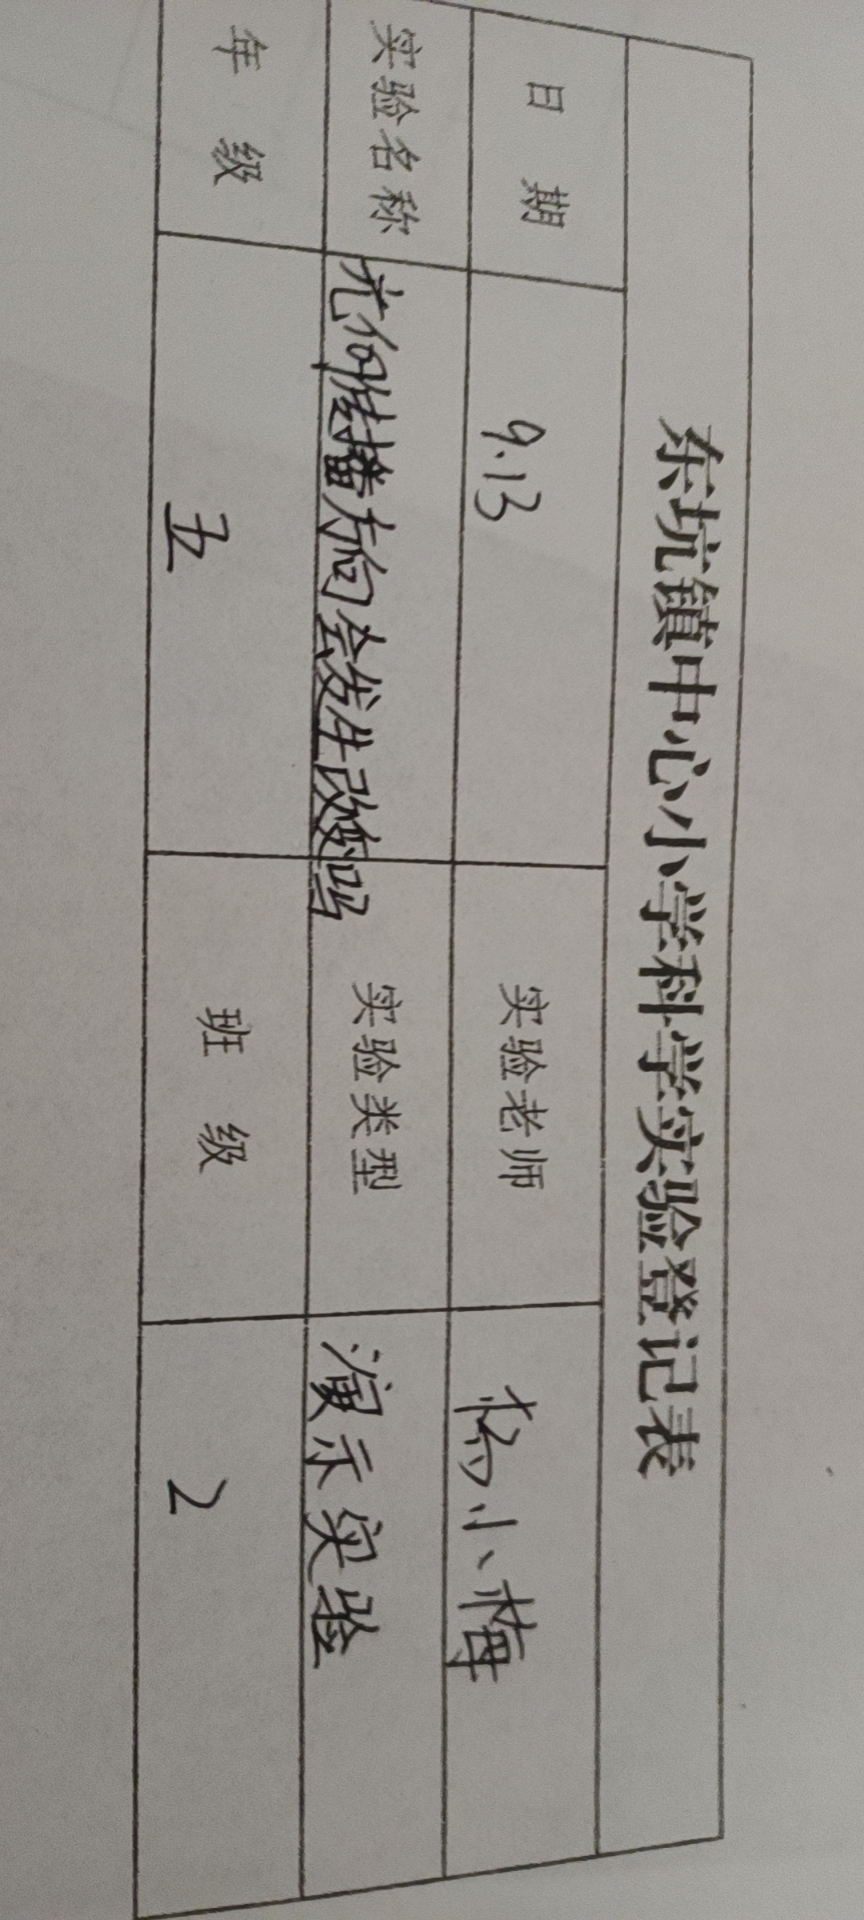 东坑镇中心小学科学实验登记表
日期 9.13 实验老师 杨小梅
实验名称 光的传播方向会发生改变吗 实验类型 演示实验
年级 五 班级 2